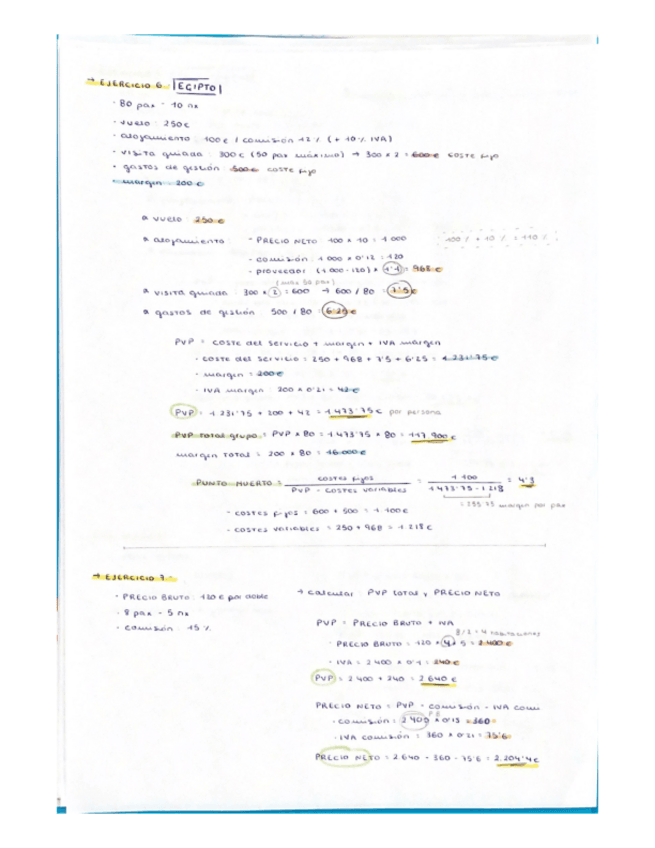 → EJERCICIO 6 EGIPTO
· 80 pax - 10 nx
· vuelo : 250€
· alojamiento : 100€ / comisión 12% (+ 10% IVA)
· visita guiada : 300€ (50 pax máximo) → 300 x 2 = 600€ coste fijo
· gastos de gestión : 500€ coste fijo
· margin = 200€
vuelo : 250€
alojamiento : - PRECIO NETO 100 x 10 = 1 000
100% + 10% = 110%
- comisión : 1 000 x 0'12 = 120
- proveedor (1 000 - 120) x 1'1 = 968€
(max 50 pax)
visita guiada : 300 x 2 = 600 → 600 / 80 = 7'5€
gastos de gestión 500 / 80 = 6'25€
PVP = COSTE del SERVICIO + margin + IVA margin
· COSTE del SERVICIO = 250 + 968 + 7'5 + 6'25 = 1 231'75€
· margin = 200€
· IVA margin : 200 x 0'21 = 42€
PVP = 1 231'75 + 200 + 42 = 1 473'75€ por persona
PVP TOTAL grupo = PVP x 80 = 1 473'75 x 80 = 117.900€
margin TOTAL = 200 x 80 = 16.000€
PUNTO MUERTO = COSTES fijos / PVP - COSTES VARIABLES = 1 100 / 1 473'75 - 1 218 = 4'3
= 255'75 margin por pax
- COSTES fijos = 600 + 500 = 1 100€
- COSTES VARIABLES = 250 + 968 = 1 218€
→ EJERCICIO 7.-
· PRECIO BRUTO : 120€ por doble
· 8 pax - 5 nx
· comisión : 15%
→ calcular : PVP total y PRECIO NETO
PVP = PRECIO BRUTO + IVA
8/2 = 4 habitaciones
· PRECIO BRUTO = 120 x 4 x 5 = 2 400€
· IVA = 2 400 x 0'1 = 240€
PVP = 2 400 + 240 = 2 640€
PRECIO NETO = PVP - comisión - IVA comi
· comisión = 2 400 x 0'15 = 360
· IVA comisión = 360 x 0'21 = 75'6
PRECIO NETO = 2 640 - 360 - 75'6 = 2.204'4€